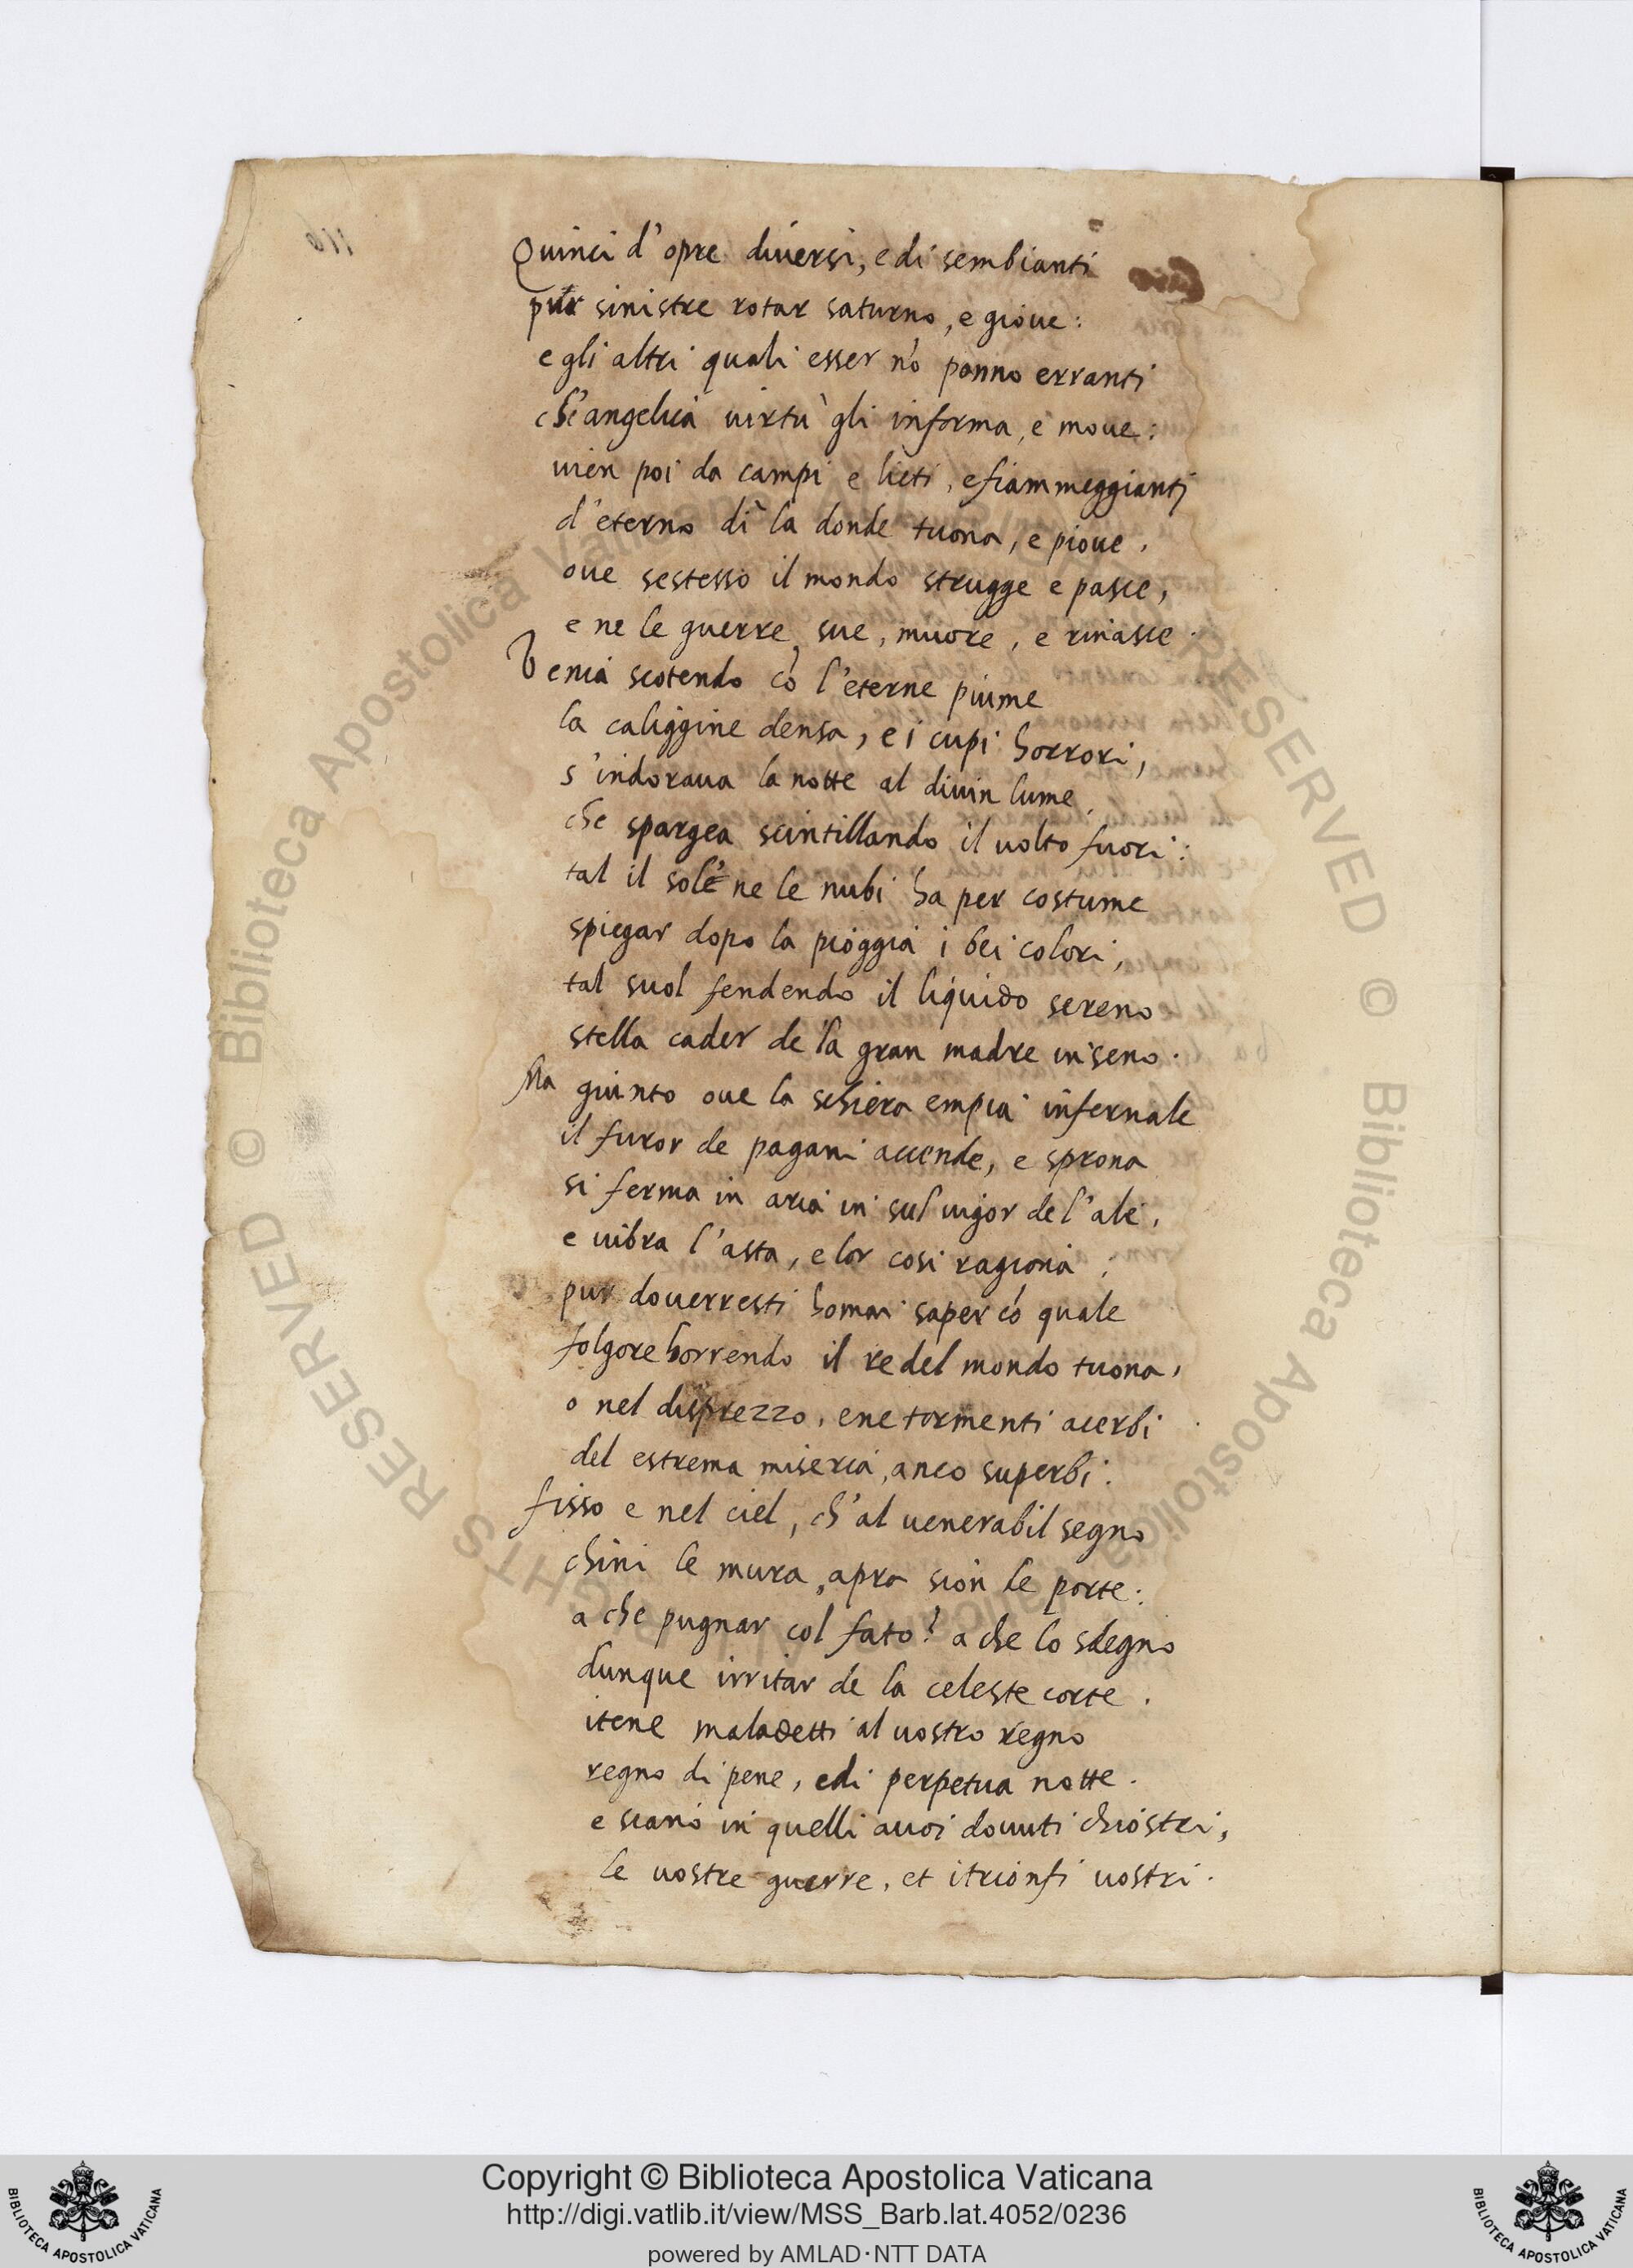 Quinci d'opre diuersi, e di sembianti
pur sinistre rotar saturno, e gioue:
e gli altri quali esser nó ponno erranti
ch'angelica uirtù gli informa, e moue:
uien poi da campi e lieti, e fiammeggianti
d'eterno dì la donde tuona, e pioue,
oue sestesso il mondo strugge e pasce,
e ne le guerre sue, muore, e rinasce.
Venia scotendo có l'eterne piume
la caliggine densa, e i cupi horrori,
s'indoraua la notte al diuin lume,
che spargea scintillando il uolto fuori:
tal il sole ne le nubi ha per costume
spiegar dopo la pioggia i bei colori,
tal suol fendendo il liquido sereno
stella cader de la gran madre in seno.
Ma giunto oue la schiera empia infernale
il furor de pagani accende, e sprona
si ferma in aria in sul uigor de l'ale,
e uibra l'asta, e lor cosi ragiona:
pur douerresti homai saper có quale
folgore horrendo il re del mondo tuona,
o nel disprezzo, e ne tormenti acerbi
del estrema miseria, anco superbi.
fisso e nel ciel, ch'al uenerabil segno
chini le mura, apra sion le porte:
a che pugnar col fato? a che lo sdegno
dunque irritar de la celeste corte.
itene maladetti al uostro regno
regno di pene, e di perpetua notte.
e siano in quelli a uoi douuti chiostri,
le uostre guerre, et i trionfi uostri.
Copyright © Biblioteca Apostolica Vaticana
http://digi.vatlib.it/view/MSS_Barb.lat.4052/0236
powered by AMLAD·NTT DATA
BIBLIOTECA APOSTOLICA VATICANA
BIBLIOTECA APOSTOLICA VATICANA